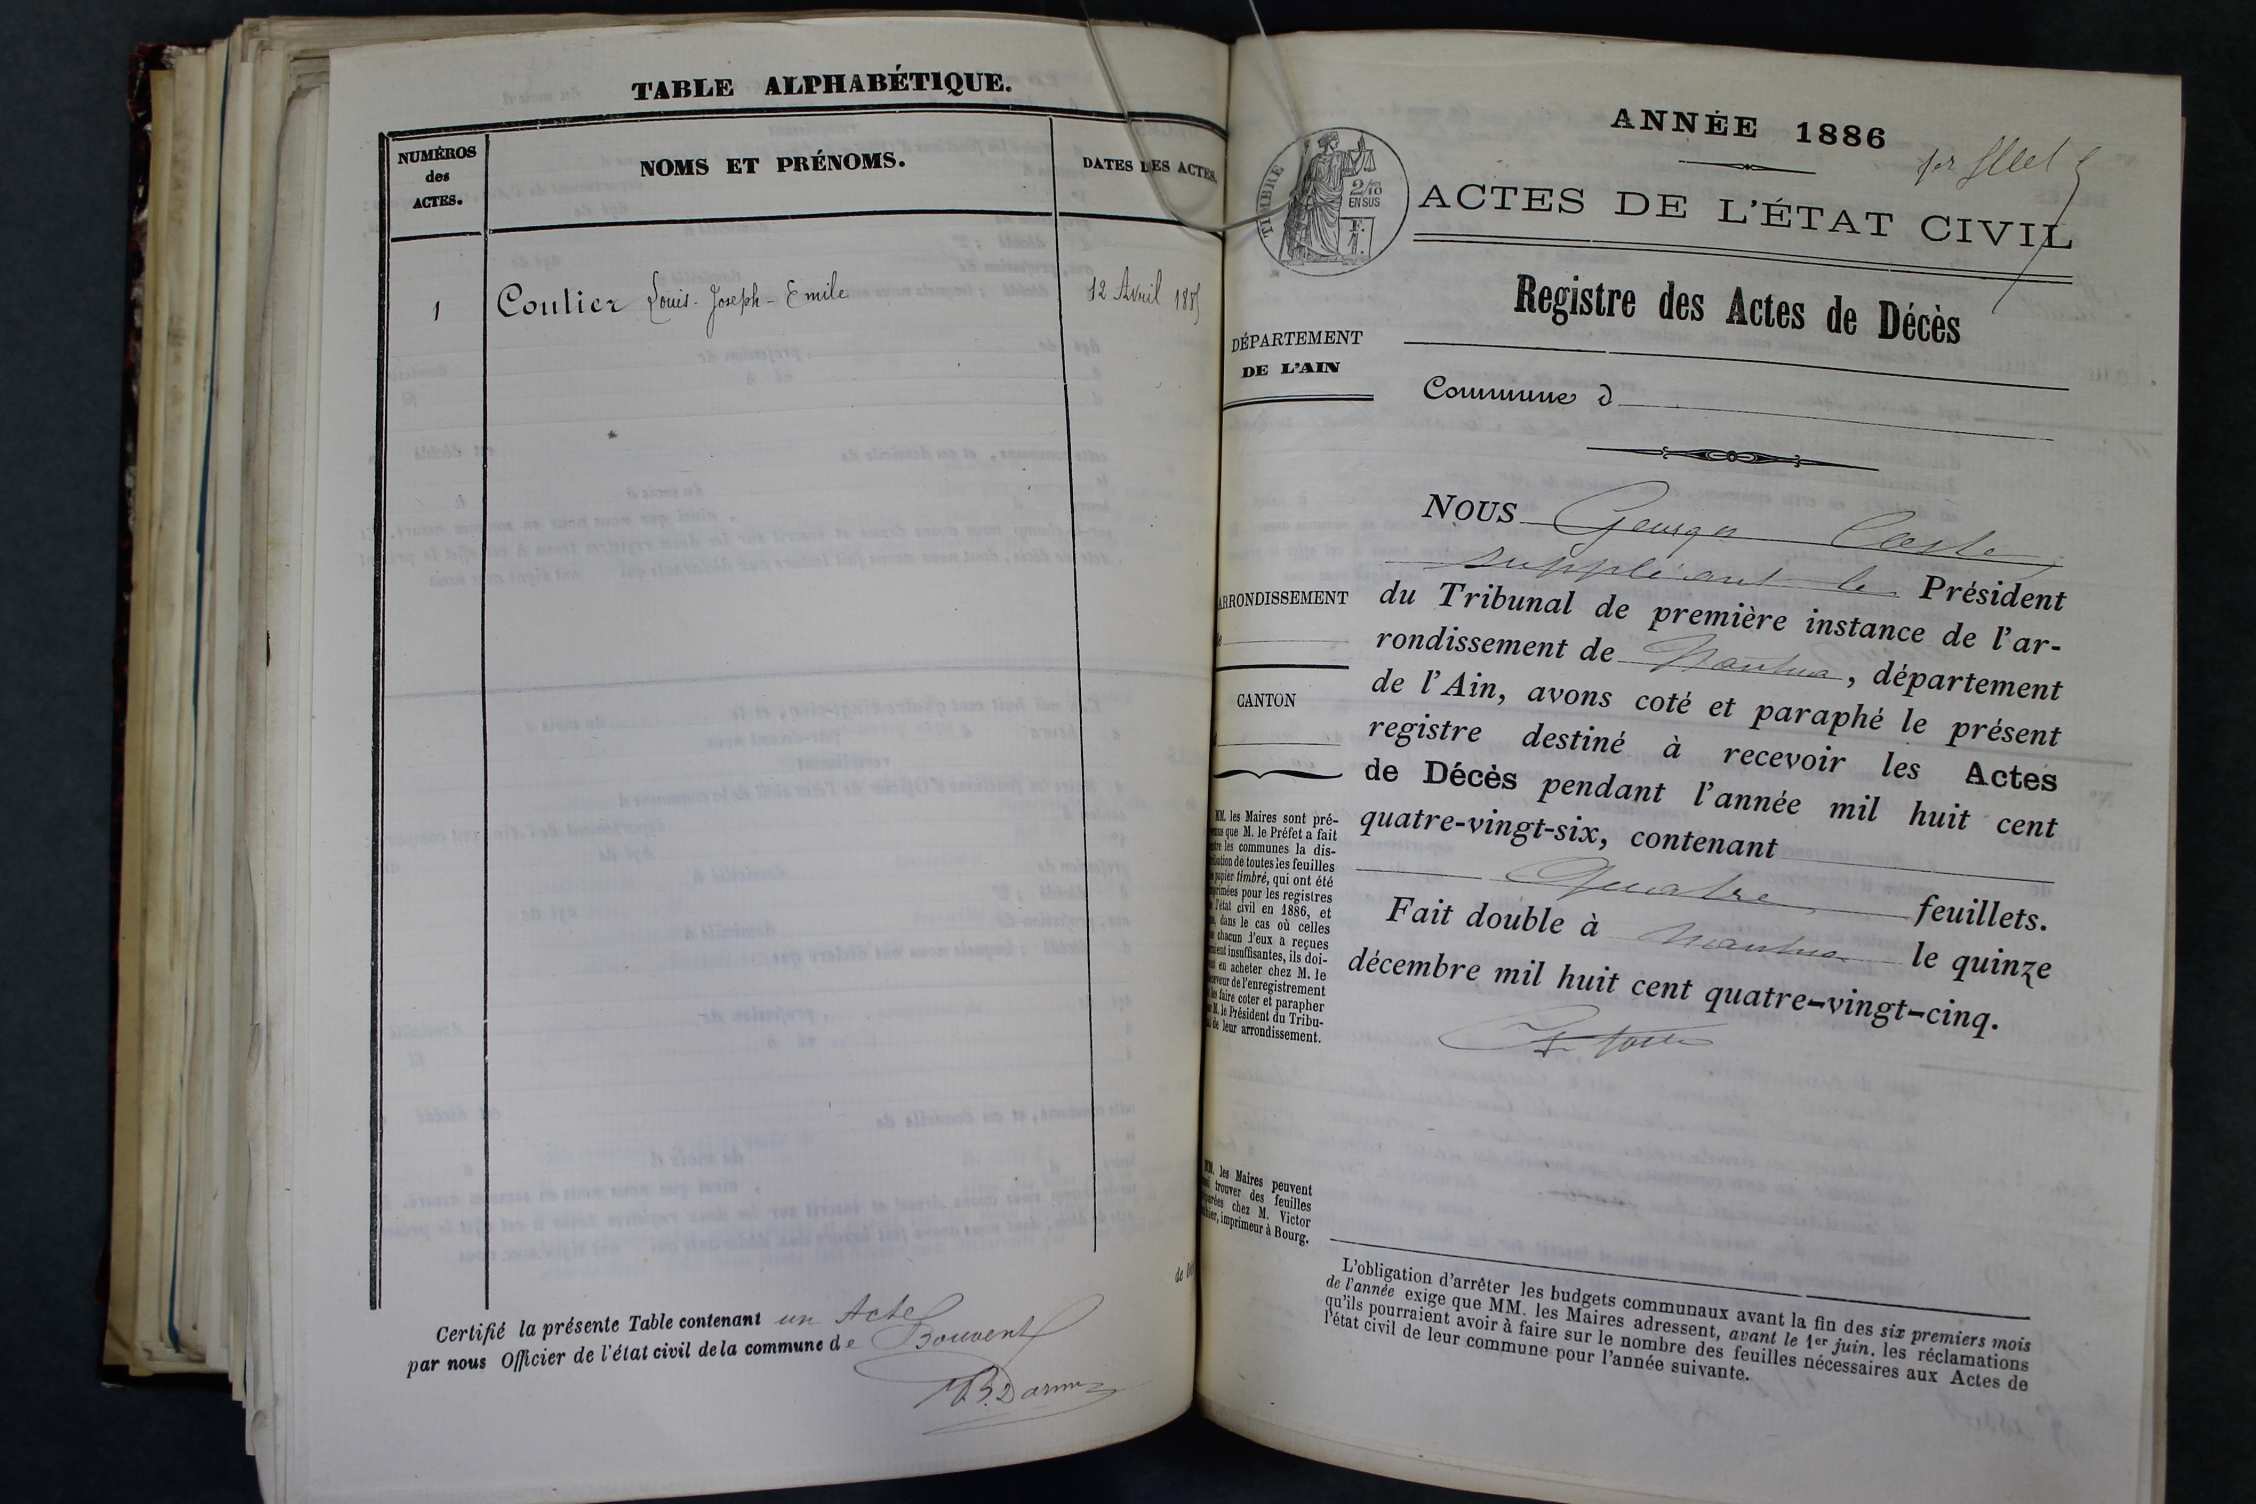 TABLE ALPHABÉTIQUE.
NUMÉROS
des
ACTES.
NOMS ET PRÉNOMS.
DATES DES ACTES.
1 Coutier Louis-Joseph-Emile 12 Avril 1885
Certifié la présente Table contenant un Acte
par nous Officier de l'état civil de la commune de Bouvent
ANNÉE 1886
ACTES DE L'ÉTAT CIVIL
TIMBRE
2/10
EN SUS
Registre des Actes de Décès
DÉPARTEMENT
DE L'AIN
Commune d
ARRONDISSEMENT
CANTON
NOUS Georges Coste
suppléant le Président
du Tribunal de première instance de l'ar-
rondissement de Nantua, département
de l'Ain, avons coté et paraphé le présent
registre destiné à recevoir les Actes
de Décès pendant l'année mil huit cent
quatre-vingt-six, contenant
Quatre feuillets.
Fait double à Nantua le quinze
décembre mil huit cent quatre-vingt-cinq.
MM. les Maires sont pré-
que M. le Préfet a fait
les communes la dis-
de toutes les feuilles
papier timbré, qui ont été
pour les registres
l'état civil en 1886, et
dans le cas où celles
chacun d'eux a reçues
insuffisantes, ils doi-
en acheter chez M. le
de l'enregistrement
les faire coter et parapher
M. le Président du Tribu-
de leur arrondissement.
MM. les Maires peuvent
trouver des feuilles
chez M. Victor
imprimeur à Bourg.
L'obligation d'arrêter les budgets communaux avant la fin des six premiers mois
de l'année exige que MM. les Maires adressent, avant le 1er juin, les réclamations
qu'ils pourraient avoir à faire sur le nombre des feuilles nécessaires aux Actes de
l'état civil de leur commune pour l'année suivante.